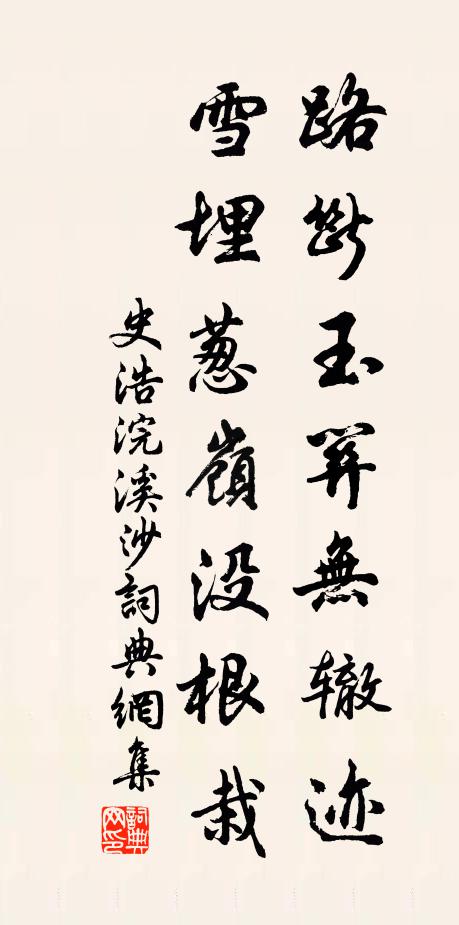 路斷玉關無轍迹
雪埋蔥嶺沒根栽
史浩浣溪沙詞典網集
詞典网印